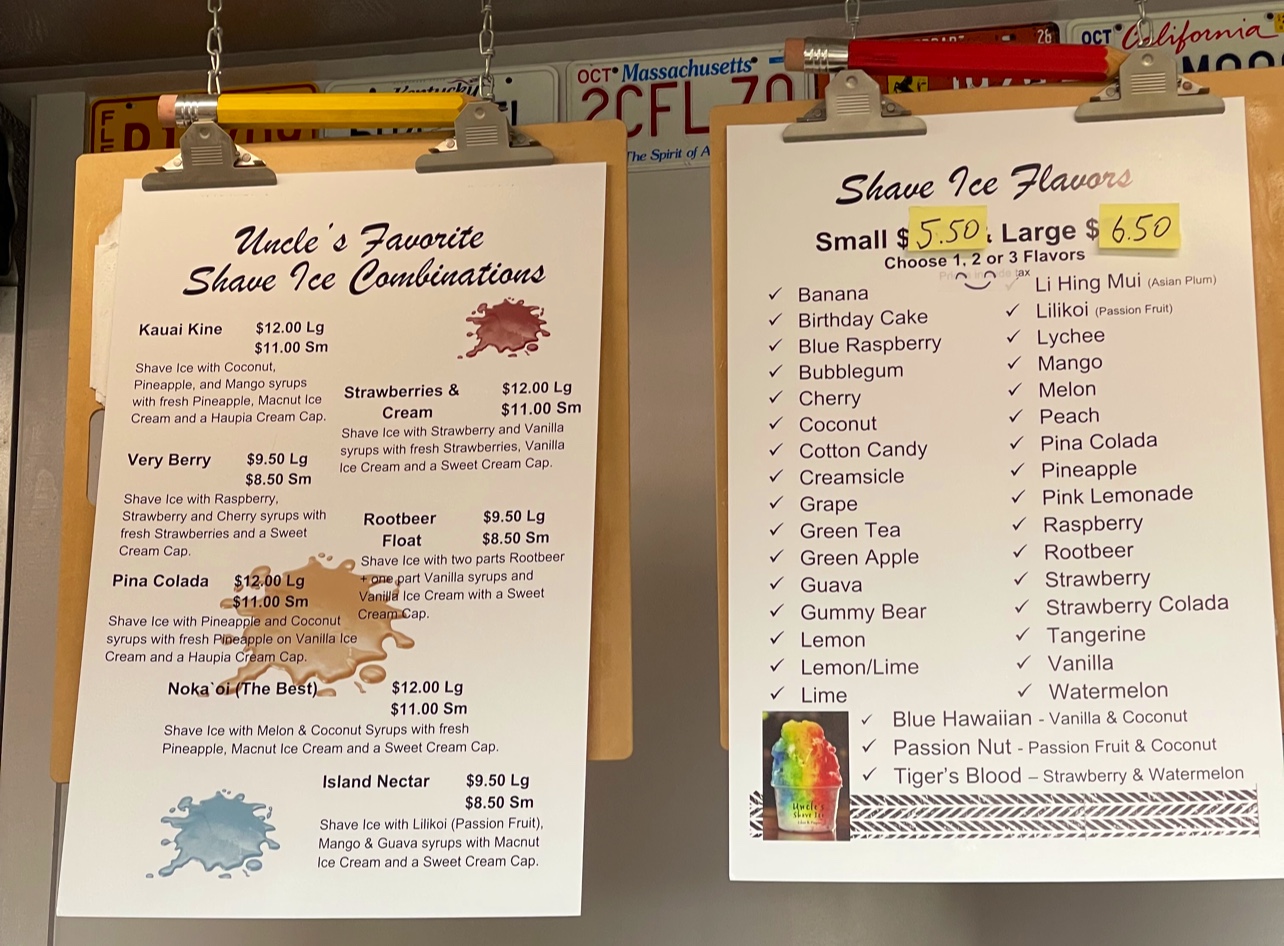 Kentucky
OCT Massachusetts
2CFL 70
The Spirit of A
28
OCT California
Uncle's Favorite
Shave Ice Combinations
Kauai Kine $12.00 Lg
$11.00 Sm
Shave Ice with Coconut,
Pineapple, and Mango syrups
with fresh Pineapple, Macnut Ice
Cream and a Haupia Cream Cap.
Strawberries & $12.00 Lg
Cream $11.00 Sm
Shave Ice with Strawberry and Vanilla
syrups with fresh Strawberries, Vanilla
Ice Cream and a Sweet Cream Cap.
Very Berry $9.50 Lg
$8.50 Sm
Shave Ice with Raspberry,
Strawberry and Cherry syrups with
fresh Strawberries and a Sweet
Cream Cap.
Rootbeer $9.50 Lg
Float $8.50 Sm
Shave Ice with two parts Rootbeer
+ one part Vanilla syrups and
Vanilla Ice Cream with a Sweet
Cream Cap.
Pina Colada $12.00 Lg
$11.00 Sm
Shave Ice with Pineapple and Coconut
syrups with fresh Pineapple on Vanilla Ice
Cream and a Haupia Cream Cap.
Noka`oi (The Best) $12.00 Lg
$11.00 Sm
Shave Ice with Melon & Coconut Syrups with fresh
Pineapple, Macnut Ice Cream and a Sweet Cream Cap.
Island Nectar $9.50 Lg
$8.50 Sm
Shave Ice with Lilikoi (Passion Fruit),
Mango & Guava syrups with Macnut
Ice Cream and a Sweet Cream Cap.
Shave Ice Flavors
Small $ 5.50 Large $ 6.50
Choose 1, 2 or 3 Flavors
tax
✓ Banana
✓ Birthday Cake
✓ Blue Raspberry
✓ Bubblegum
✓ Cherry
✓ Coconut
✓ Cotton Candy
✓ Creamsicle
✓ Grape
✓ Green Tea
✓ Green Apple
✓ Guava
✓ Gummy Bear
✓ Lemon
✓ Lemon/Lime
✓ Lime
✓ Li Hing Mui (Asian Plum)
✓ Lilikoi (Passion Fruit)
✓ Lychee
✓ Mango
✓ Melon
✓ Peach
✓ Pina Colada
✓ Pineapple
✓ Pink Lemonade
✓ Raspberry
✓ Rootbeer
✓ Strawberry
✓ Strawberry Colada
✓ Tangerine
✓ Vanilla
✓ Watermelon
✓ Blue Hawaiian - Vanilla & Coconut
✓ Passion Nut - Passion Fruit & Coconut
✓ Tiger's Blood – Strawberry & Watermelon
Uncle's
Shave Ice